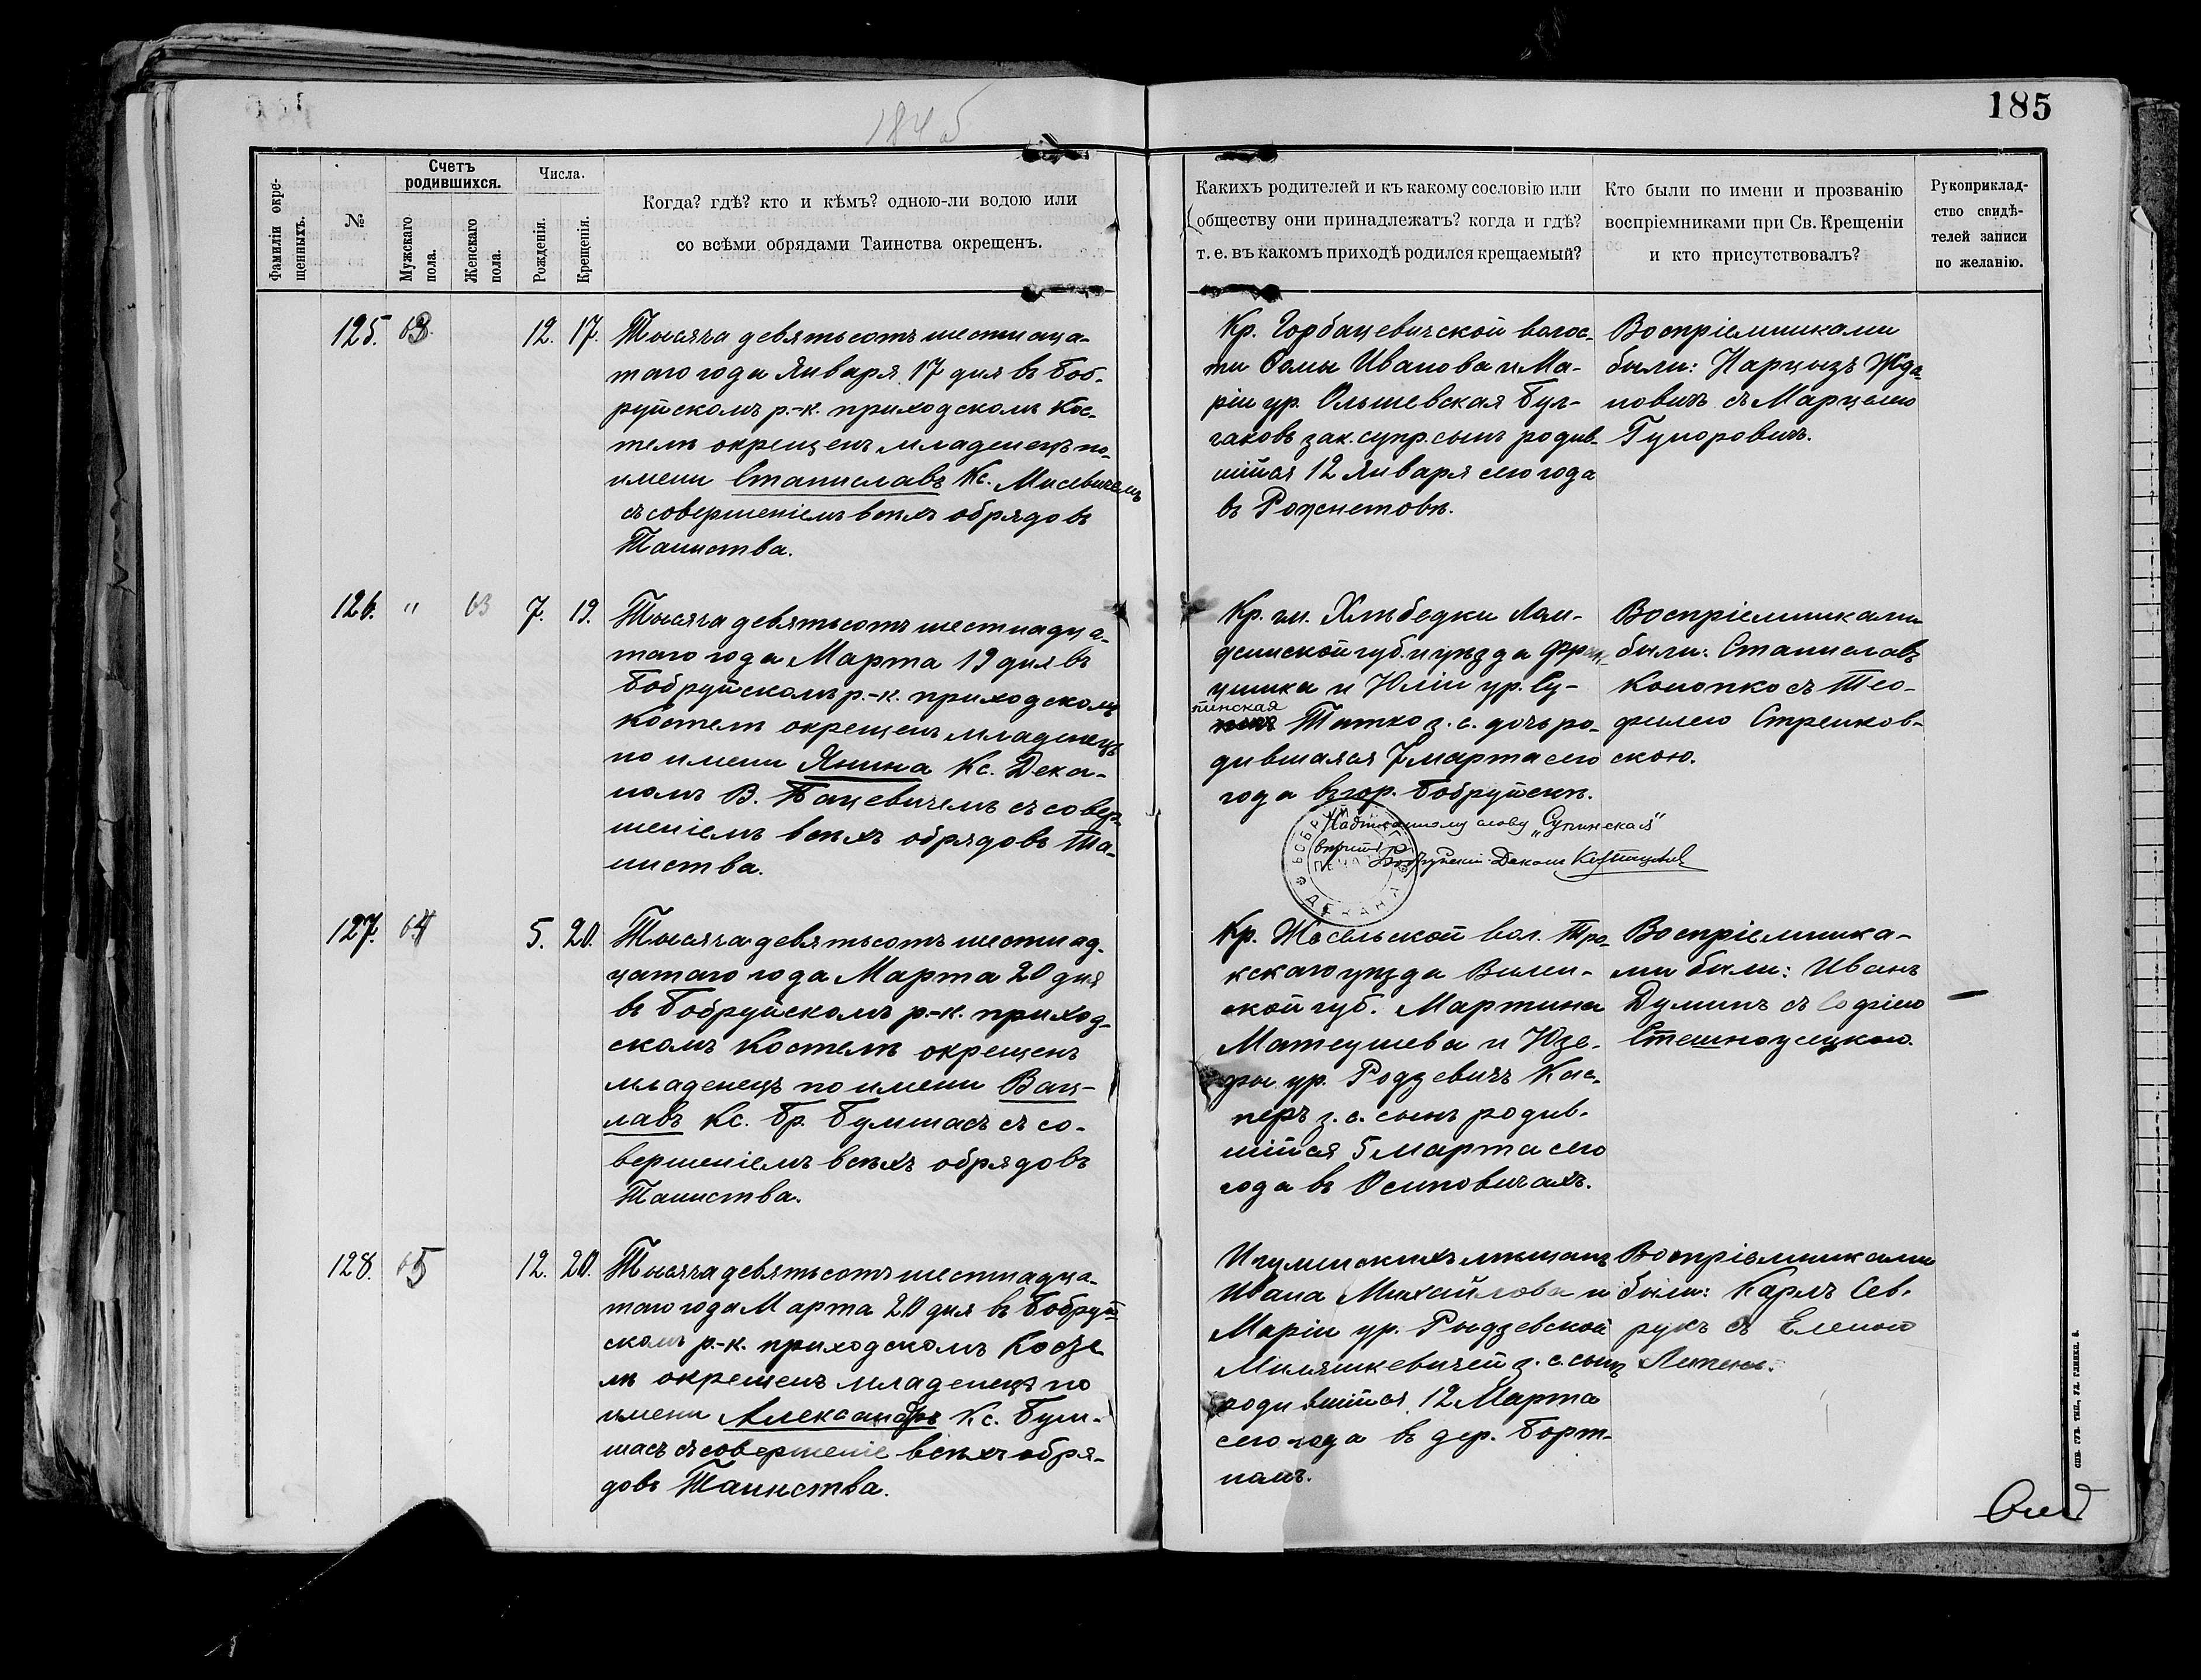 185
Фамиліи окре-
щенныхъ.
№
Счетъ
родившихся.
Мужскаго
пола.
Женскаго
пола.
Числа.
Рожденія.
Крещенія.
Когда? гдѣ? кто и кѣмъ? одною-ли водою или
со всѣми обрядами Таинства окрещенъ.
Какихъ родителей и къ какому сословію или
обществу они принадлежатъ? когда и гдѣ?
т. е. въ какомъ приходѣ родился крещаемый?
Кто были по имени и прозванію
воспріемниками при Св. Крещеніи
и кто присутствовалъ?
Рукоприклад-
ство свидѣ-
телей записи
по желанію.
125. 63. 12. 17.
Тысяча девятьсотъ шестнаца-
таго года Января 17 дня въ Боб-
руйскомъ р.-к. приходскомъ Кос-
телѣ окрещенъ младенецъ по
имени Станиславъ Кс. Мисевичемъ
съ совершеніемъ всѣхъ обрядовъ
Таинства.
Кр. Горбацевичской волос-
ти Ѳомы Иванова и Ма-
ріи ур. Ольшевская Бул-
гаковъ зак. супр. сынъ родив-
шійся 12 Января сего года
въ Рожнетовѣ.
Воспріемниками
были: Нарцызъ Жда-
новичъ съ Марцелею
Гуторовичъ.
126. " 63 7. 19.
Тысяча девятьсотъ шестнадца-
таго года Марта 19 дня въ
Бобруйскомъ р.-к. приходскомъ
Костелѣ окрещенъ младенецъ
по имени Янина Кс. Дека-
номъ В. Бацевичемъ съ совер-
шеніемъ всѣхъ обрядовъ Та-
инства.
Кр. гм. Хлѣбедки Лом-
жинской губ. и уѣзда Фран-
цишка и Юліи ур. Су-
пинская
Татко з. с. дочь ро-
дившаяся 7 марта сего
года въ гор. Бобруйскѣ.
Надписанному слову „Супинская"
вѣрить
Бобруйскій Деканъ
Воспріемниками
были: Станиславъ
Конопко съ Тео-
филею Стренков-
скою.
127. 64 5. 20.
Тысяча девятьсотъ шестнад-
цатаго года Марта 20 дня
въ Бобруйскомъ р.-к. приход-
скомъ Костелѣ окрещенъ
младенецъ по имени Вац-
лавъ Кс. Бр. Бумшасъ съ со-
вершеніемъ всѣхъ обрядовъ
Таинства.
Кр. Жосельской вол. Тро-
кскаго уѣзда Вилен-
ской губ. Мартина
Матеушева и Юзе-
фы ур. Родзевичъ Кас-
перъ з. с. сынъ родив-
шійся 5 марта сего
года въ Осиповичахъ.
Воспріемника-
ми были: Иванъ
Думинъ съ Софіею
128. 65 12. 20.
Тысяча девятьсотъ шестнадца-
таго года Марта 20 дня въ Бобруй-
скомъ р.-к. приходскомъ Косте
лѣ окрещенъ младенецъ по
имени Александръ Кс. Бум-
шасъ съ совершеніе всѣхъ обря-
довъ Таинства.
Игуменскихъ мѣщанъ
Ивана Михайлова и
Маріи ур. Рыдзевской
Миляшкевичей з. с. сынъ
родившійся 12 Марта
сего года въ дер. Борт-
намъ.
Воспріемниками
были: Карлъ Сев-
рукъ съ Еленою